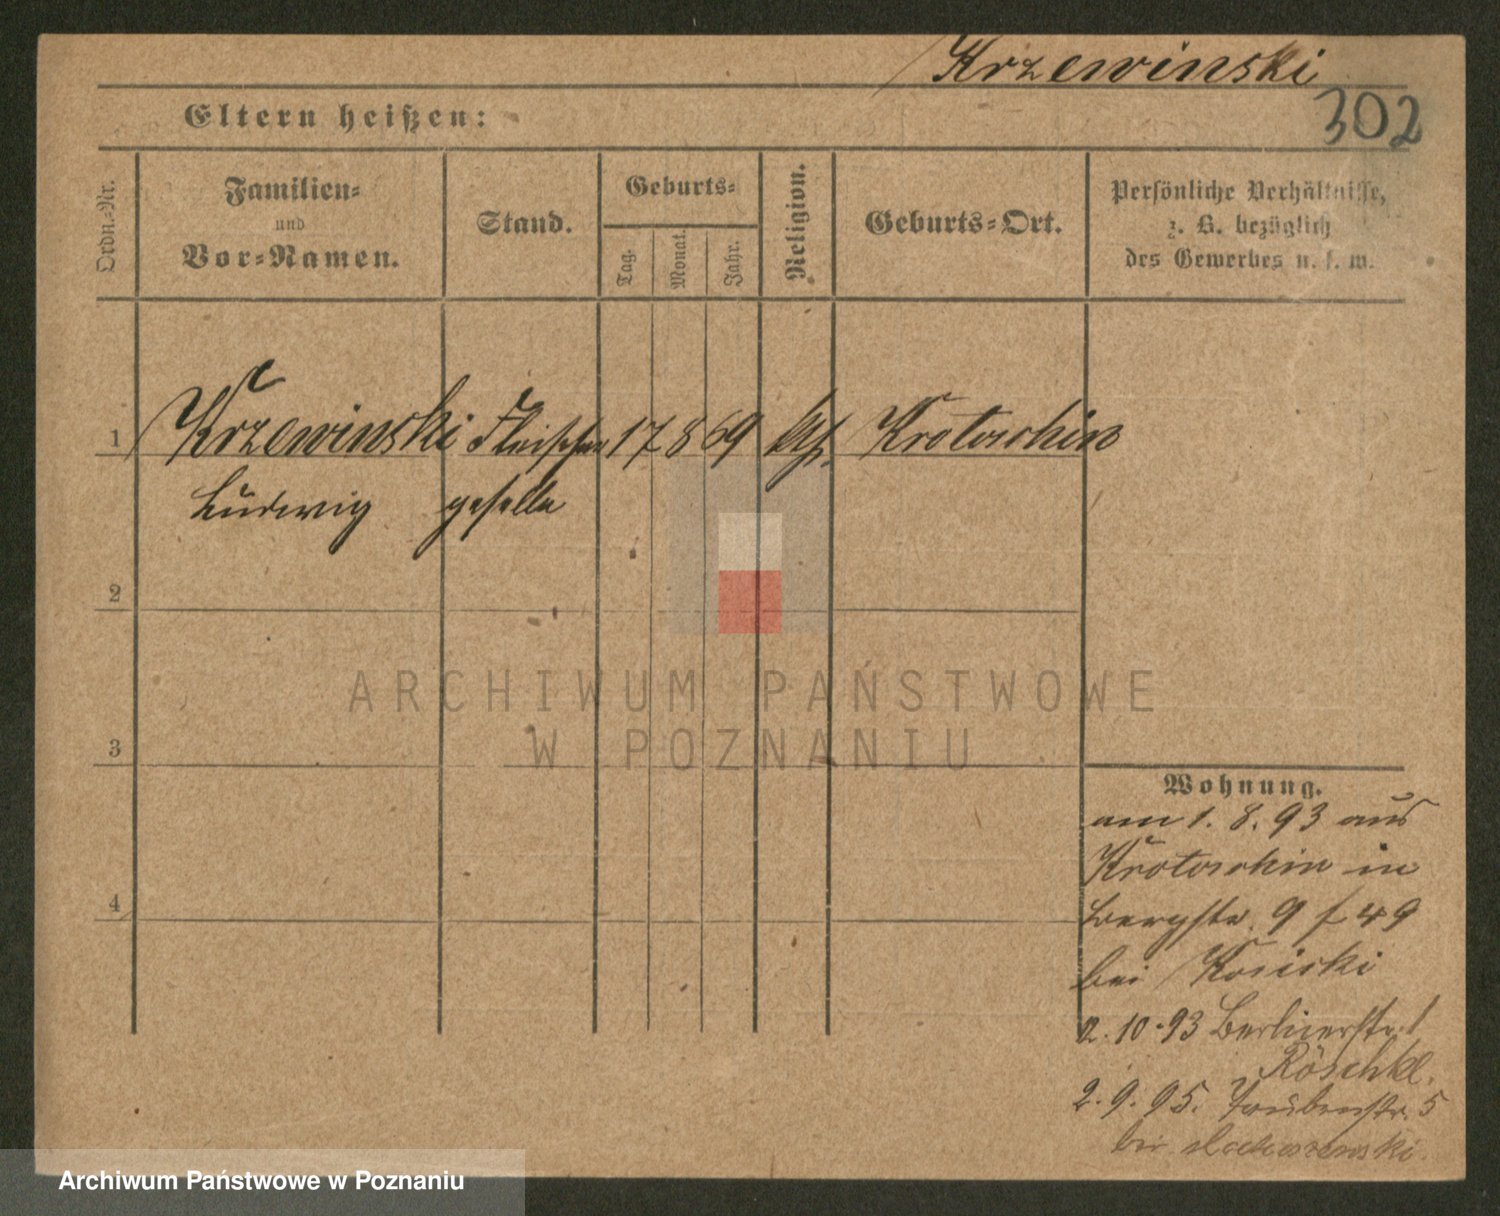 Krzewinski
302
Eltern heißen:
Ordn.-Nr.
Familien-
und
Vor-Namen.
Stand.
Geburts-
Tag.
Monat.
Jahr.
Religion.
Geburts-Ort.
Persönliche Verhältnisse,
z. B. bezüglich
des Gewerbes u. s. w.
1 Krzewinski Fleischer 17 8 69 kth. Krotoschin
Ludwig geselle
2
3
4
Wohnung.
am 1. 8. 93 aus
Krotoschin in
Bergstr. 9 f 49
bei Kosicki
2. 10. 93 Berlinerstr. 1
Röschke.
2. 9. 95. Taubenstr. 5
bei
ARCHIWUM PAŃSTWOWE
W POZNANIU
Archiwum Państwowe w Poznaniu